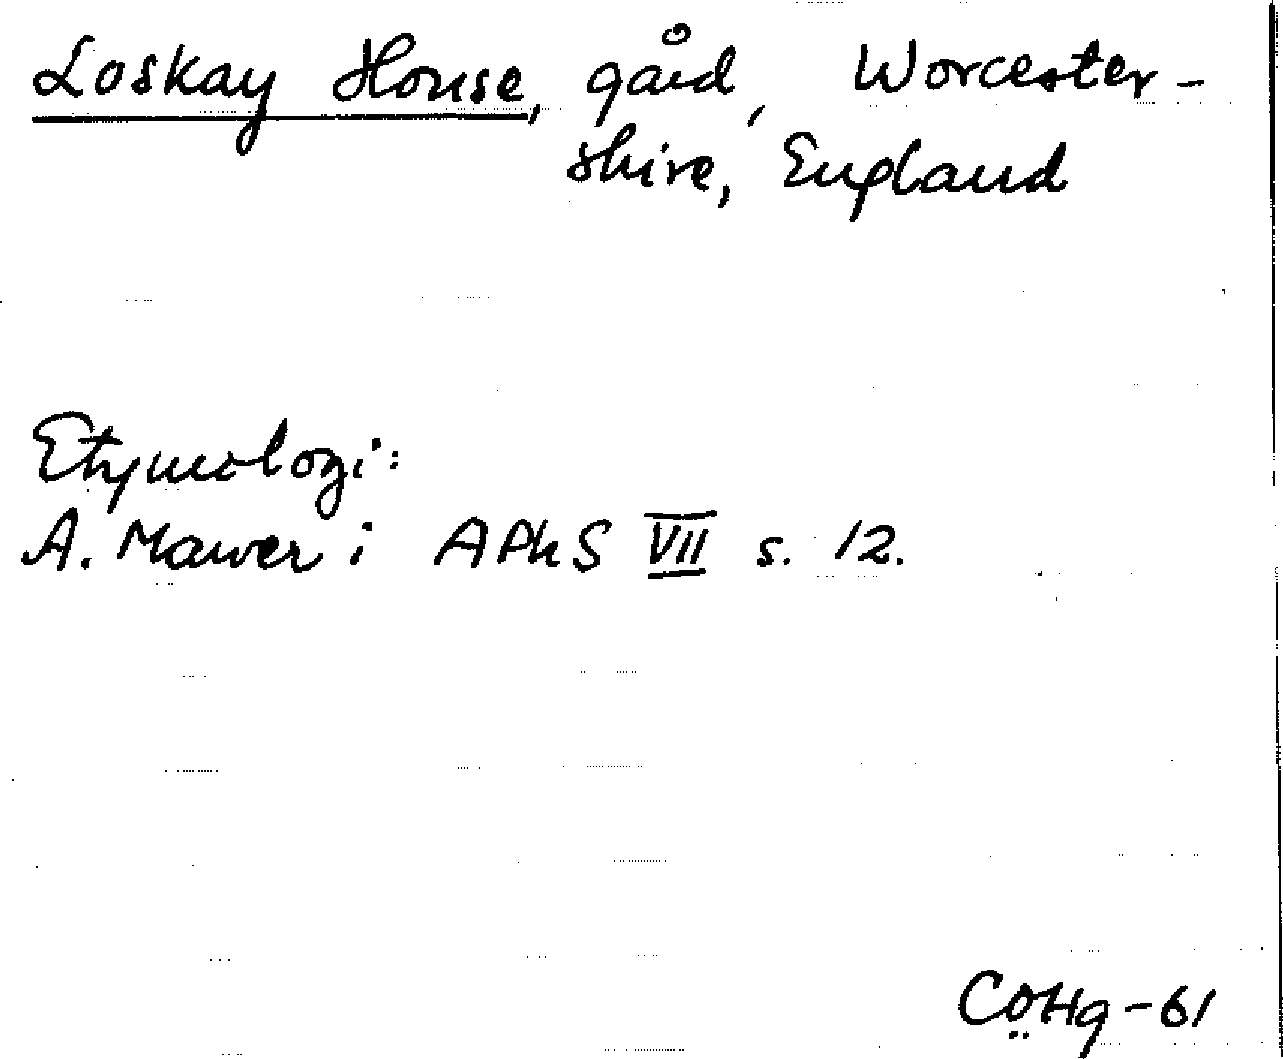 Loskay House, gård, Worcester-
shire, England
Etymologi:
A. Mawer i APhS VII s. 12.
CöHg-61